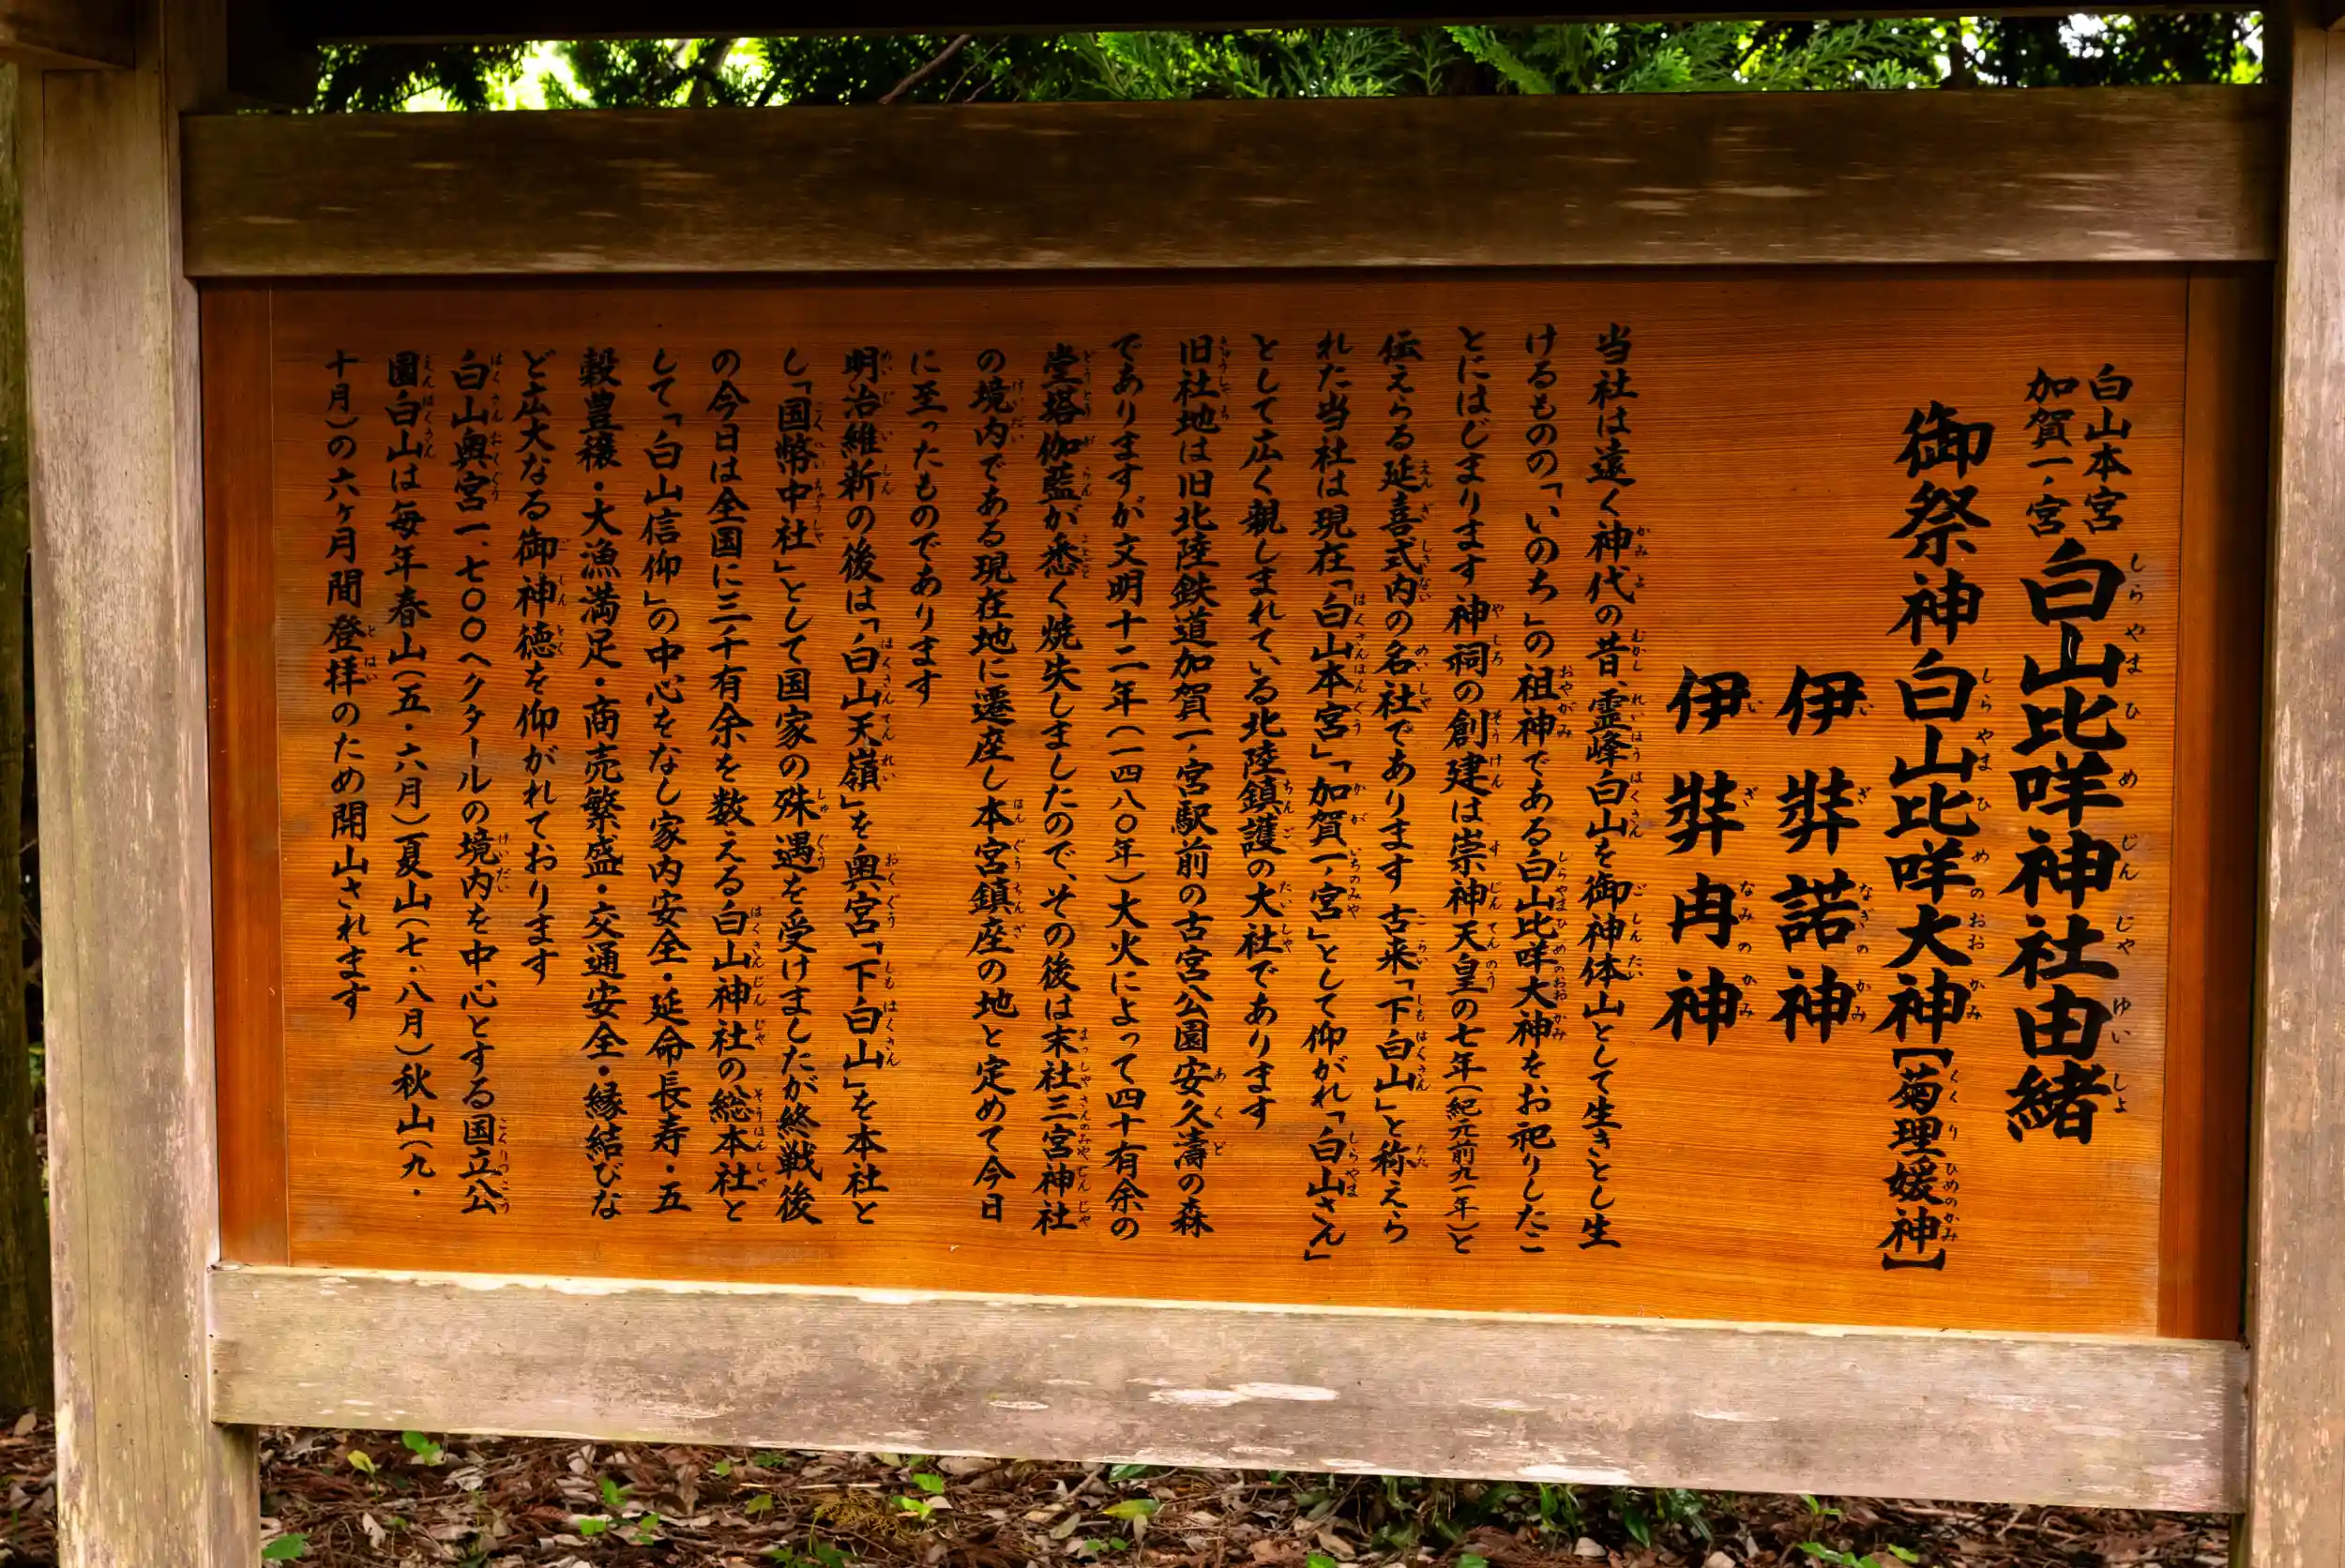 白山本宮
加賀一ノ宮
白山比咩神社由緒
御祭神白山比咩大神【菊理媛神】
伊弉諾神
伊弉冉神
当社は遠く神代の昔、霊峰白山を御神体山として生きとし生
けるものの「いのち」の祖神である白山比咩大神をお祀りしたこ
とにはじまります 神祠の創建は崇神天皇の七年(紀元前九一年)と
伝えらる延喜式内の名社であります 古来「下白山」と称えら
れた当社は現在「白山本宮」「加賀一ノ宮」として仰がれ「白山さん」
として広く親しまれている北陸鎮護の大社であります
旧社地は旧北陸鉄道加賀一ノ宮駅前の古宮公園安久濤の森
でありますが文明十二年(一四八〇年)大火によって四十有余の
堂塔伽藍が悉く焼失しましたので、その後は末社三宮神社
の境内である現在地に遷座し本宮鎮座の地と定めて今日
に至ったものであります
明治維新の後は「白山天嶺」を奥宮「下白山」を本社と
し「国幣中社」として国家の殊遇を受けましたが終戦後
の今日は全国に三千有余を数える白山神社の総本社と
して「白山信仰」の中心をなし家内安全・延命長寿・五
穀豊穣・大漁満足・商売繁盛・交通安全・縁結びな
ど広大なる御神徳を仰がれております
白山奥宮一、七〇〇ヘクタールの境内を中心とする国立公
園白山は毎年春山(五・六月)夏山(七・八月)秋山(九・
十月)の六ヶ月間登拝のため開山されます